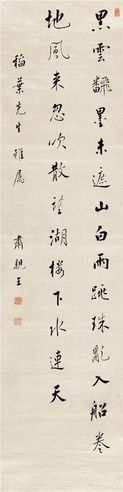 黑雲翻墨未遮山白雨跳珠亂入船卷
地風來忽吹散望湖樓下水連天
稻葉先生雅屬
肅親王